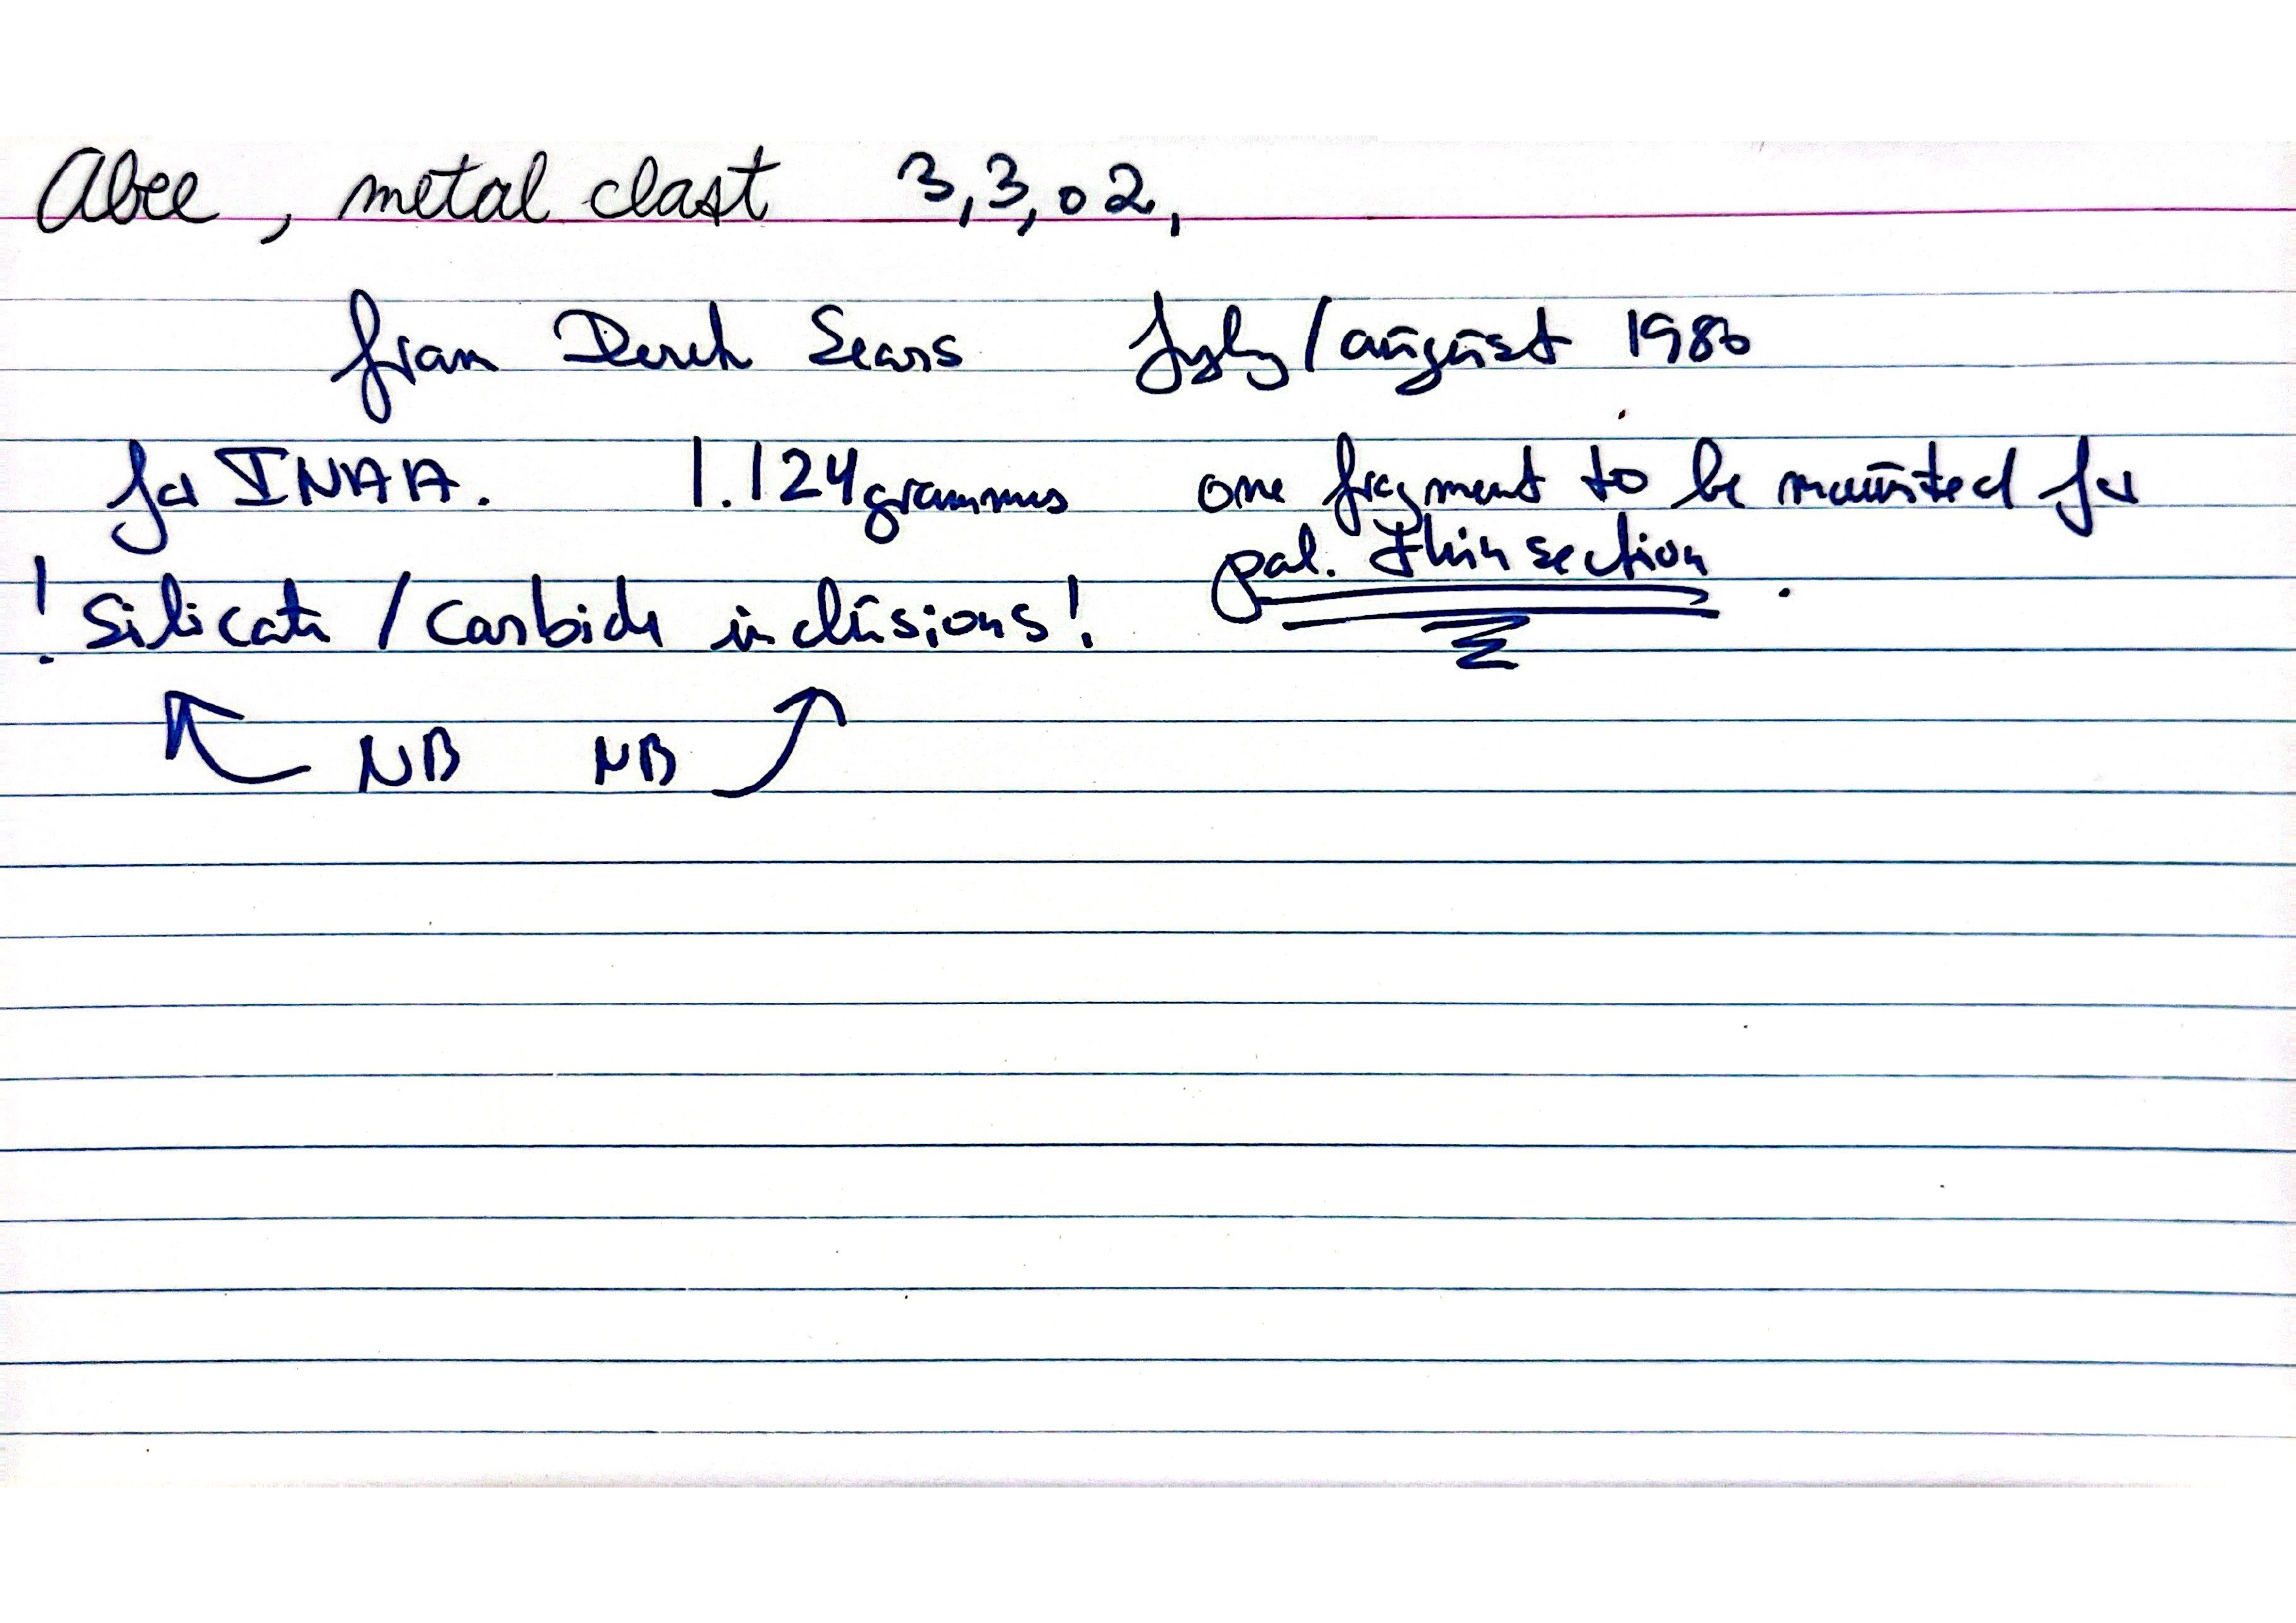 Abee, metal clast 3,3,02,
from Derek Sears July/august 1980
for INAA. 1.124 grammes one fragment to be mounted for
pol. thin section.
! Silicate / Carbide inclusions!
NB NB